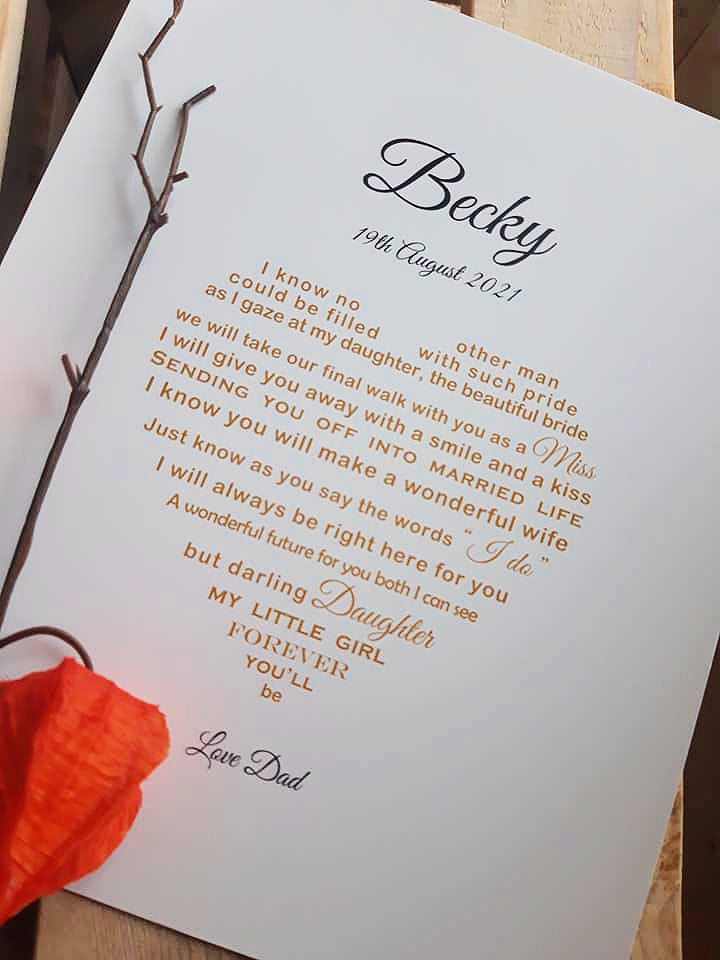 Becky
19th August 2021
I know no other man
could be filled with such pride
as I gaze at my daughter, the beautiful bride
we will take our final walk with you as a Miss
I will give you away with a smile and a kiss
SENDING YOU OFF INTO MARRIED LIFE
I know you will make a wonderful wife
Just know as you say the words “I do”
I will always be right here for you
A wonderful future for you both I can see
but darling Daughter
MY LITTLE GIRL
FOREVER
YOU'LL
be
Love Dad